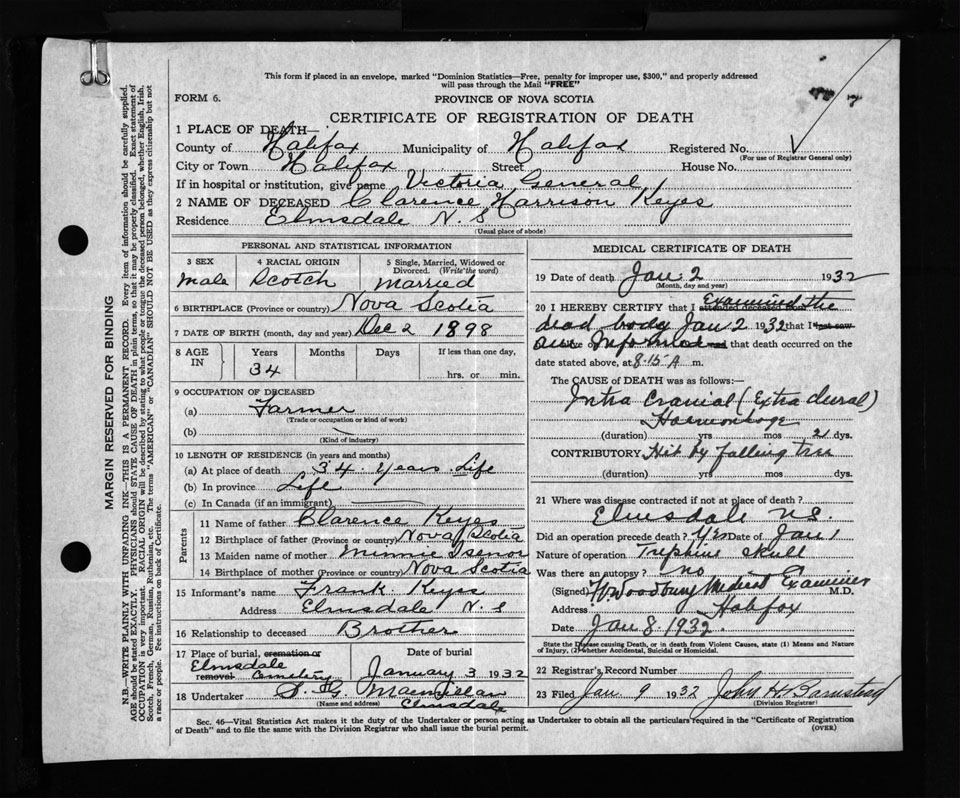 This form if placed in an envelope, marked "Dominion Statistics—Free, penalty for improper use, $300," and properly addressed
will pass through the Mail "FREE"
FORM 6.
PROVINCE OF NOVA SCOTIA
CERTIFICATE OF REGISTRATION OF DEATH
1 PLACE OF DEATH—
County of Halifax Municipality of Halifax Registered No.
(For use of Registrar General only)
City or Town Halifax Street House No.
If in hospital or institution, give name Victoria General
2 NAME OF DECEASED Clarence Harrison Keyes
Residence Elmsdale N. S
(Usual place of abode)
PERSONAL AND STATISTICAL INFORMATION
3 SEX 4 RACIAL ORIGIN 5 Single, Married, Widowed or
Divorced. (Write the word)
male Scotch married
6 BIRTHPLACE (Province or country) Nova Scotia
7 DATE OF BIRTH (month, day and year) Dec 2 1898
8 AGE IN Years Months Days If less than one day,
34 hrs. or min.
9 OCCUPATION OF DECEASED
(a) Farmer
(Trade or occupation or kind of work)
(b)
(Kind of industry)
10 LENGTH OF RESIDENCE (in years and months)
(a) At place of death 34 years Life
(b) In province Life
(c) In Canada (if an immigrant)
Parents
11 Name of father Clarence Keyes
12 Birthplace of father (Province or country) Nova Scotia
13 Maiden name of mother Minnie Isenor
14 Birthplace of mother (Province or country) Nova Scotia
15 Informant's name Frank Keyes
Address Elmsdale N. S
16 Relationship to deceased Brother
17 Place of burial, cremation or Date of burial
Elmsdale
removal Cemetery January 3 1932
18 Undertaker S. G. Macmillan
(Name and address) Elmsdale
MEDICAL CERTIFICATE OF DEATH
19 Date of death Jan. 2 1932
(Month, day and year)
20 I HEREBY CERTIFY that I attended deceased from Examined the
dead body Jan 2 1932 that I last saw
am Informed and that death occurred on the
date stated above, at 8.15 A m.
The CAUSE OF DEATH was as follows:—
Intra Cranial (Extra dural)
Haemorrhage
(duration) yrs mos 21 dys.
CONTRIBUTORY Hit by falling tree
(duration) yrs mos dys.
21 Where was disease contracted if not at place of death?
Elmsdale N.S.
Did an operation precede death? Yes Date of Jan 1
Nature of operation Trephine skull
Was there an autopsy? no
(Signed) Woodbury Medical Examiner M.D.
Address Halifax
Date Jan 8. 1932.
State the Disease causing Death, or in death from Violent Causes, state (1) Means and
Nature of Injury, (2) whether Accidental, Suicidal or Homicidal.
22 Registrar's Record Number
23 Filed Jan 9 1932 John H Barnstead
(Division Registrar)
Sec. 46—Vital Statistics Act makes it the duty of the Undertaker or person acting as Undertaker to obtain all the particulars required in the "Certificate of Registration
of Death" and to file the same with the Division Registrar who shall issue the burial permit. (OVER)
MARGIN RESERVED FOR BINDING
N.B.—WRITE PLAINLY WITH UNFADING INK—THIS IS A PERMANENT RECORD. Every item of information should be carefully supplied.
AGE should be stated EXACTLY. PHYSICIANS should STATE CAUSE OF DEATH in plain terms, so that it may be properly classified. Exact statement of
OCCUPATION is very important. RACIAL ORIGIN will be described by stating to what people or tongue the deceased person belonged, whether English, Irish,
Scotch, French, German, Russian, Ruthenian, etc. The terms "AMERICAN" or "CANADIAN" SHOULD NOT BE USED as they express citizenship but not
a race or people. Fee instructions on back of Certificate.